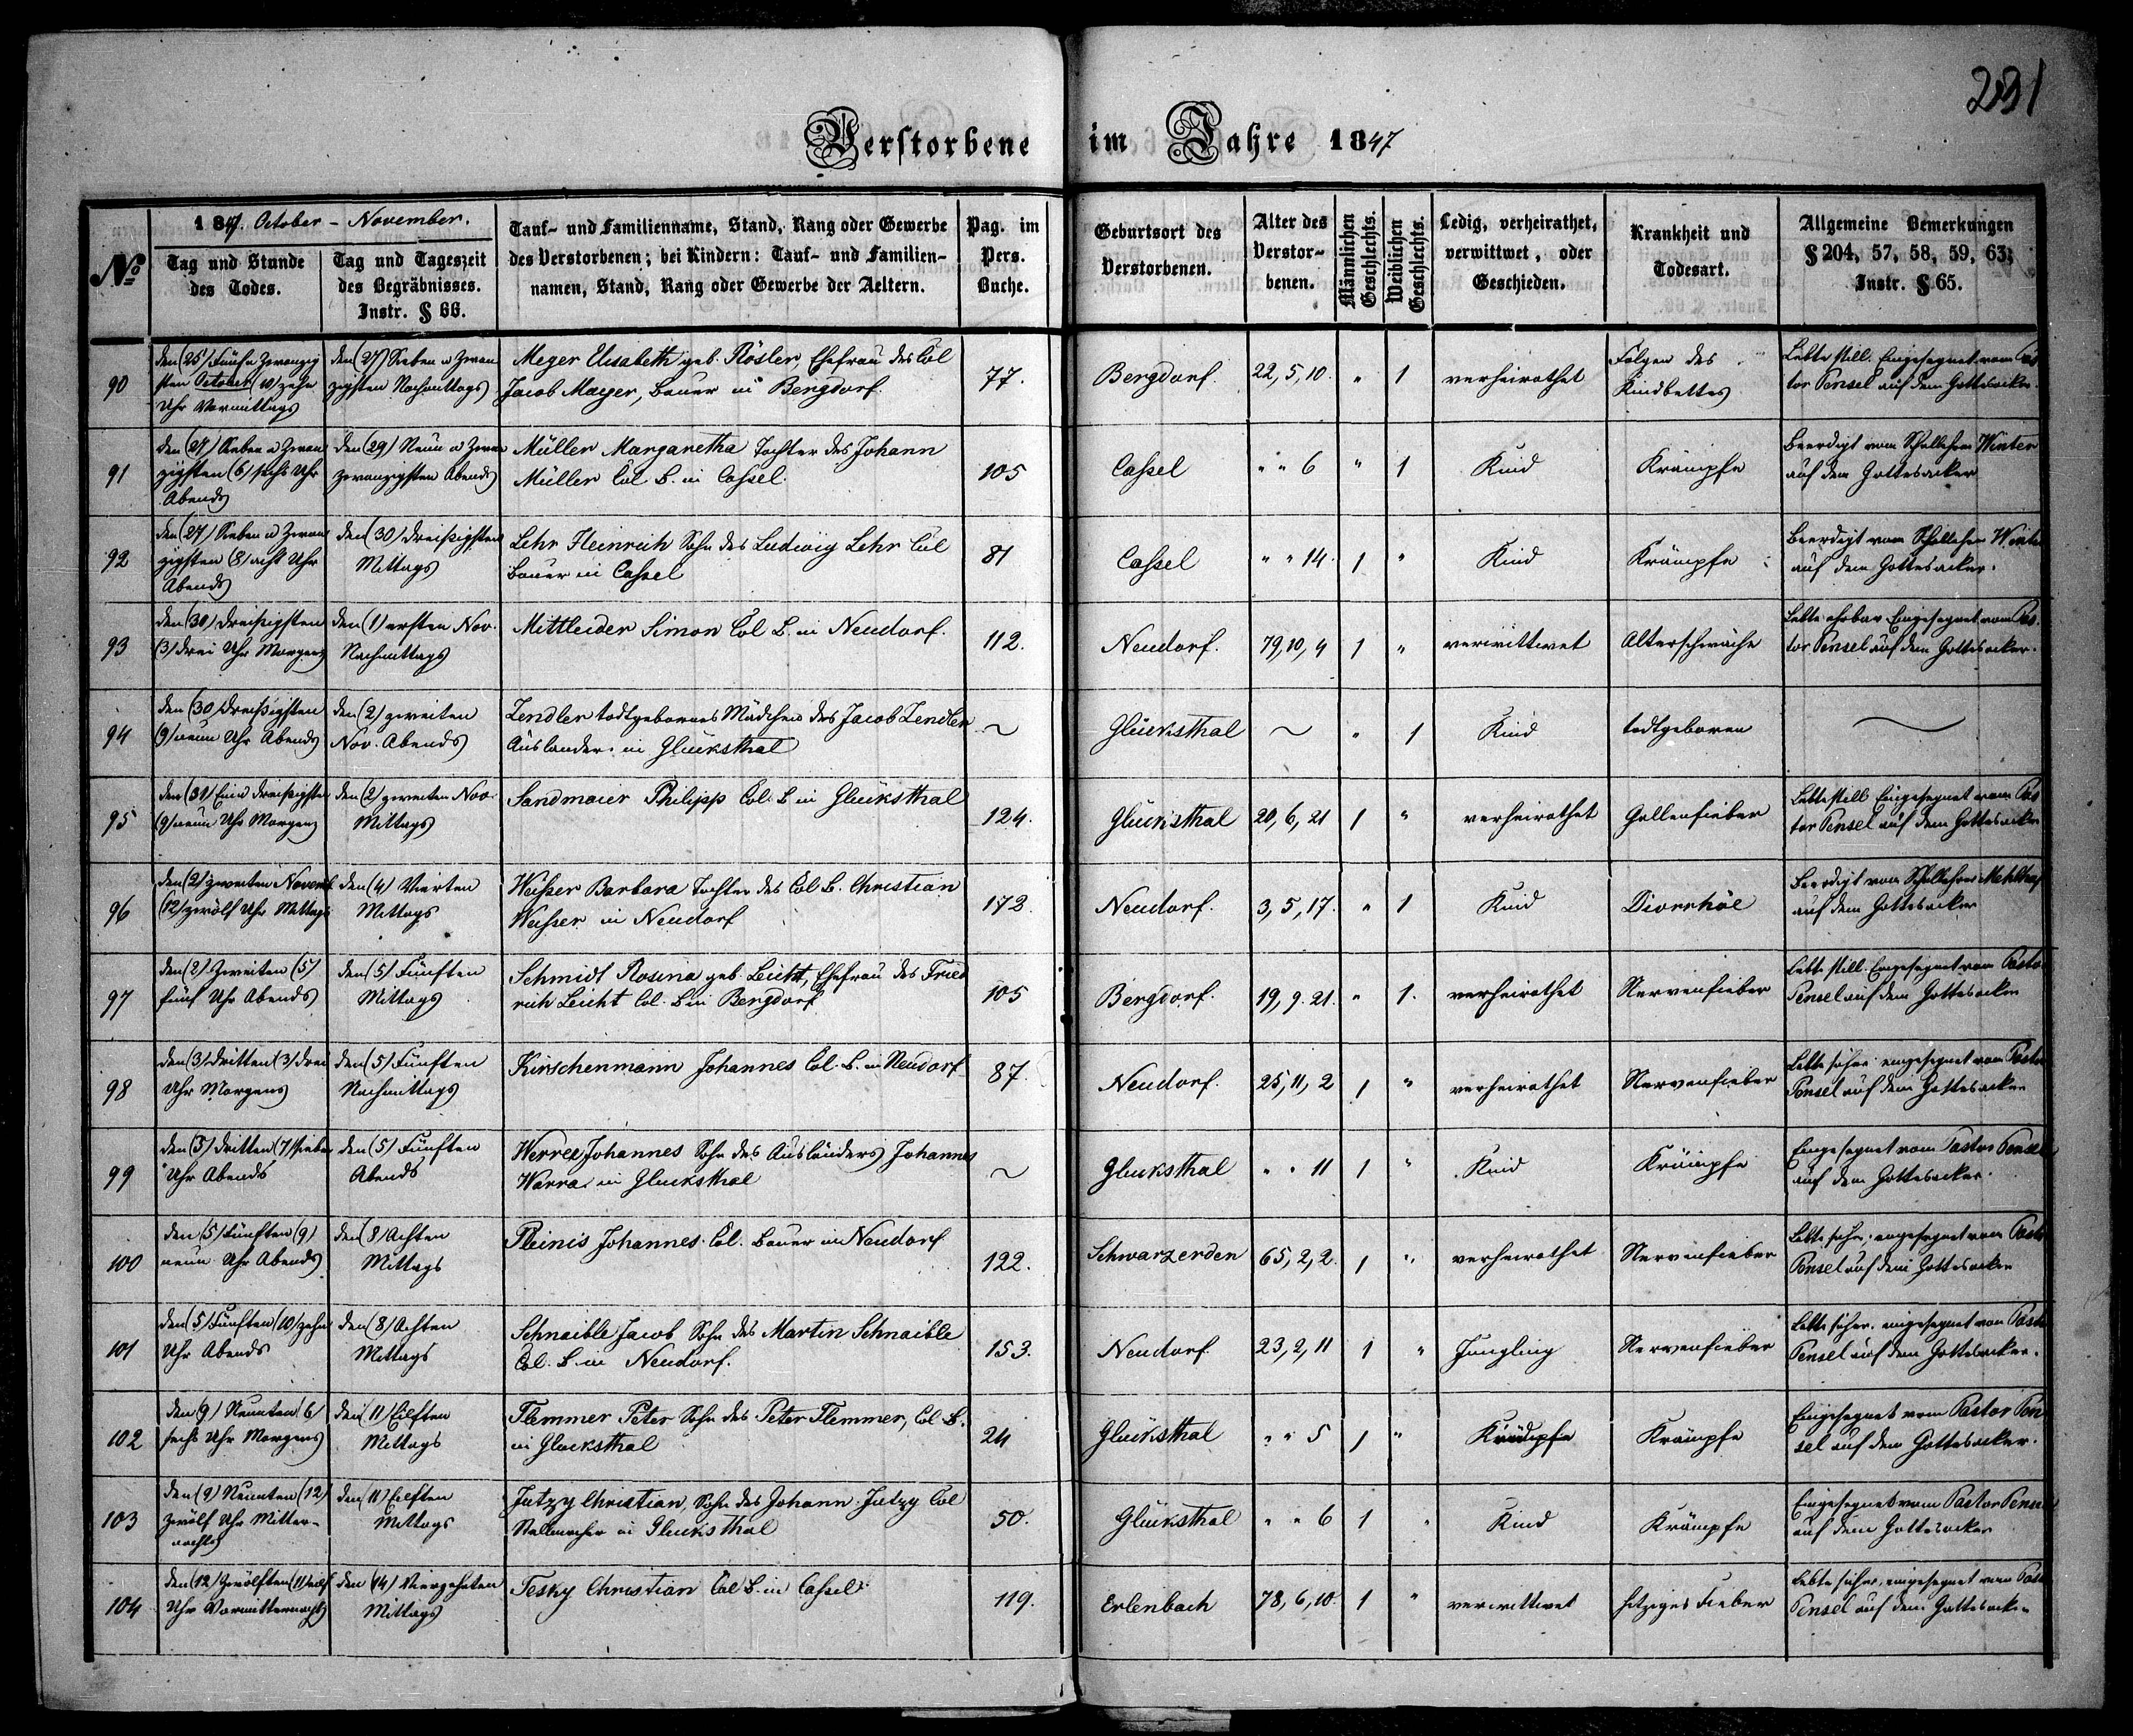 231
Verstorbene im Jahre 1847
№
1847. October – November.
Tag und Stunde
des Todes.
Tag und Tageszeit
des Begräbnisses.
Instr. § 66.
Tauf- und Familienname, Stand, Rang oder Gewerbe
des Verstorbenen; bei Kindern: Tauf- und Familien-
namen, Stand, Rang oder Gewerbe der Aeltern.
Pag. im
Pers.
Buche.
Geburtsort des
Verstorbenen.
Alter des
Verstor-
benen.
Männlichen
Geschlechts.
Weiblichen
Geschlechts.
Ledig, verheirathet,
verwittwet, oder
Geschieden.
Krankheit und
Todesart.
Allgemeine Bemerkungen
§ 204, 57, 58, 59, 63;
Instr. § 65.
90
den (25) Fünf u Zwanzig
sten October (10) zehn
Uhr Vormittags
den (27) Sieben u Zwan
zigsten Nachmittags
Meyer Elisabeth geb. Rösler, Ehefrau des Col
Jacob Mayer, Bauer in Bergdorf.
77.
Bergdorf.
22, 5, 10.
" 1
verheirathet
Folgen des
Kindbettes
Lebte still. Eingesegnet vom Pas
tor Pensel auf dem Gottesacker.
91
den (27) Sieben u Zwan
zigsten (6) sechs Uhr
Abends
den (29) Neun u Zwan
zwanzigsten Abends
Müller Margaretha Tochter des Johann
Müller Col B. in Cassel.
105
Cassel
" " 6
" 1
Kind
Krämpfe
Beerdigt vom Schullehrer Winter
auf dem Gottesacker
92
den (27) Sieben u Zwan
zigsten (8) acht Uhr
Abends
den (30) dreißigsten
Mittags
Lehr Heinrich Sohn des Ludwig Lehr Col
Bauer in Cassel
81
Cassel
" " 14.
1 "
Kind
Krämpfe
Beerdigt vom Schullehrer Winter
auf dem Gottesacker.
93
den (30) dreißigsten
(3) drei Uhr Morgens
den (1) ersten Nov.
Nachmittags
Mittleider Simon Col B. in Neudorf.
112.
Neudorf.
79, 10, 4
1 "
verwittwet
Altersschwäche
Lebte ehrbar Eingesegnet vom Pas
tor Pensel auf dem Gottesacker.
94
den (30) dreißigsten
(9) neun Uhr Abends
den (2) zweiten
Nov. Abends
Zendler todtgebornes Mädchen des Jacob Zendler
Auslander in Glücksthal
~
Glücksthal
~
" 1
Kind
todtgeboren
~
95
den (31) Ein u dreißigsten
(9) neun Uhr Morgens
den (2) zweiten Nov.
Mittags
Sandmaier Philipp Col. B in Glücksthal
124.
Glücksthal
20, 6, 21
1 "
verheirathet
Gallenfieber
Lebte still Eingesegnet vom Pas
tor Pensel auf dem Gottesacker
96
den (2) zweiten Novemb
(12) zwölf Uhr Mittags
den (4) Vierten
Mittags
Weisser Barbara Tochter des Col B. Christian
Weisser in Neudorf
172.
Neudorf.
3, 5, 17.
" 1
Kind
Diorrhöe
Beerdigt vom Schullehrer
auf dem Gottesacker
97
den (2) Zweiten (5)
fünf Uhr Abends
den (5) Fünften
Mittags
Schmidt Rosina geb. Leicht, Ehefrau des Fried
rich Leicht Col. B in Bergdorf
105
Bergdorf.
19, 9. 21.
" 1.
verheirathet
Nervenfieber
Lebte still. Eingesegnet vom Pastor
Pensel auf dem Gottesacker
98
den (3) dritten (3) drei
Uhr Morgens
den (5) Fünften
Nachmittags
Kirschenmann Johannes Col. B. in Neudorf
87.
Neudorf.
25, 11, 2
1 "
verheirathet
Nervenfieber
Lebte eingesegnet vom Pastor
Pensel auf dem Gottesacker
99
den (3) dritten (7) sieben
Uhr Abends
den (5) Fünften
Abends
Werre Johannes Sohn des Ausländers Johannes
Warra in Glucksthal
~
Glucksthal
" " 11
1 "
Kind
Krämpfe
Eingesegnet vom Pastor Pensel
auf dem Gottesacker.
100
den (5) Fünften (9)
neun Uhr Abends
den (8) Achten
Mittags
Pleinis Johannes Col. Bauer in Neudorf
122.
Schwarzerden
65, 2, 2.
1 "
verheirathet
Nervenfieber
Lebte eingesegnet vom Pastor
Pensel auf dem Gottesacker
101
den (5) Fünften (10) zehn
Uhr Abends
den (8) Achten
Mittags
Schnaible Jacob Sohn des Martin Schnaible
Col. B. in Neudorf.
153.
Neudorf
23, 2, 11
1 "
Jüngling
Nervenfieber
Lebte eingesegnet vom Pastor
Pensel auf dem Gottesacker.
102
den (9) Neunten (6)
sechs Uhr Morgens
den (11) Eilften
Mittags
Flemmer Peter Sohn des Peter Flemmer, Col B.
in Glucksthal
24
Glücksthal
" " 5
1 "
Krämpfe
Krämpfe
Eingesegnet vom Pastor Pen
sel auf dem Gottesacker.
103
den (9) Neunten (12)
zwölf Uhr Mitter-
nachts
den (11) Eilften
Mittags
Jutzy Christian, Sohn des Johann Jutzy Col
Stellmacher in Glucksthal
50.
Glücksthal
" " 6
1 "
Kind
Krämpfe
Eingesegnet vom Pastor Pensel
auf dem Gottesacker
104
den (12) Zwölften (11) eilf
Uhr Vormitternachts
den (14) Vierzehnten
Mittags
Tesky Christian Col B. in Cassel.
119.
Erlenbach
78, 6, 10.
1 "
verwittwet
hitziges Fieber
Lebte eingesegnet vom Pastor
Pensel auf dem Gottesacker